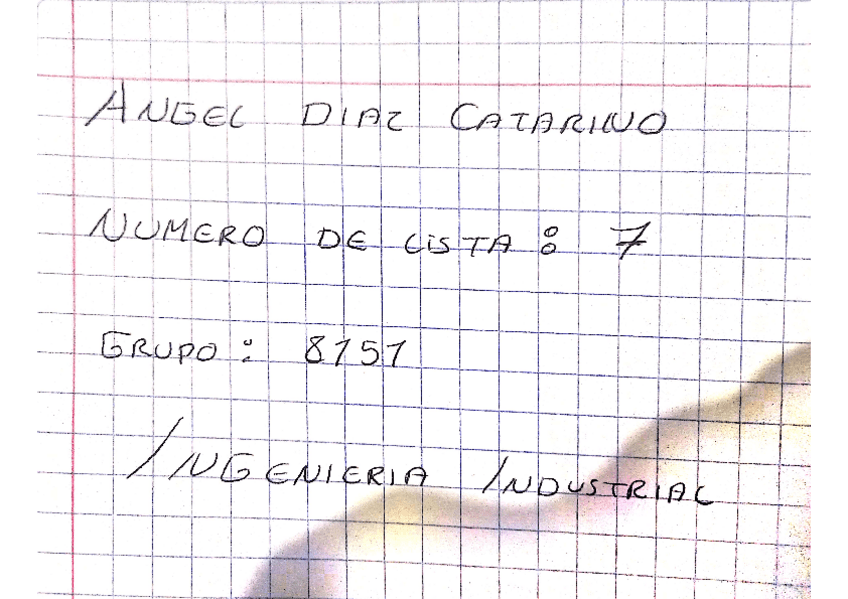 ANGEL DIAZ CATARINO
NUMERO DE LISTA: 7
GRUPO: 8151
INGENIERIA INDUSTRIAL